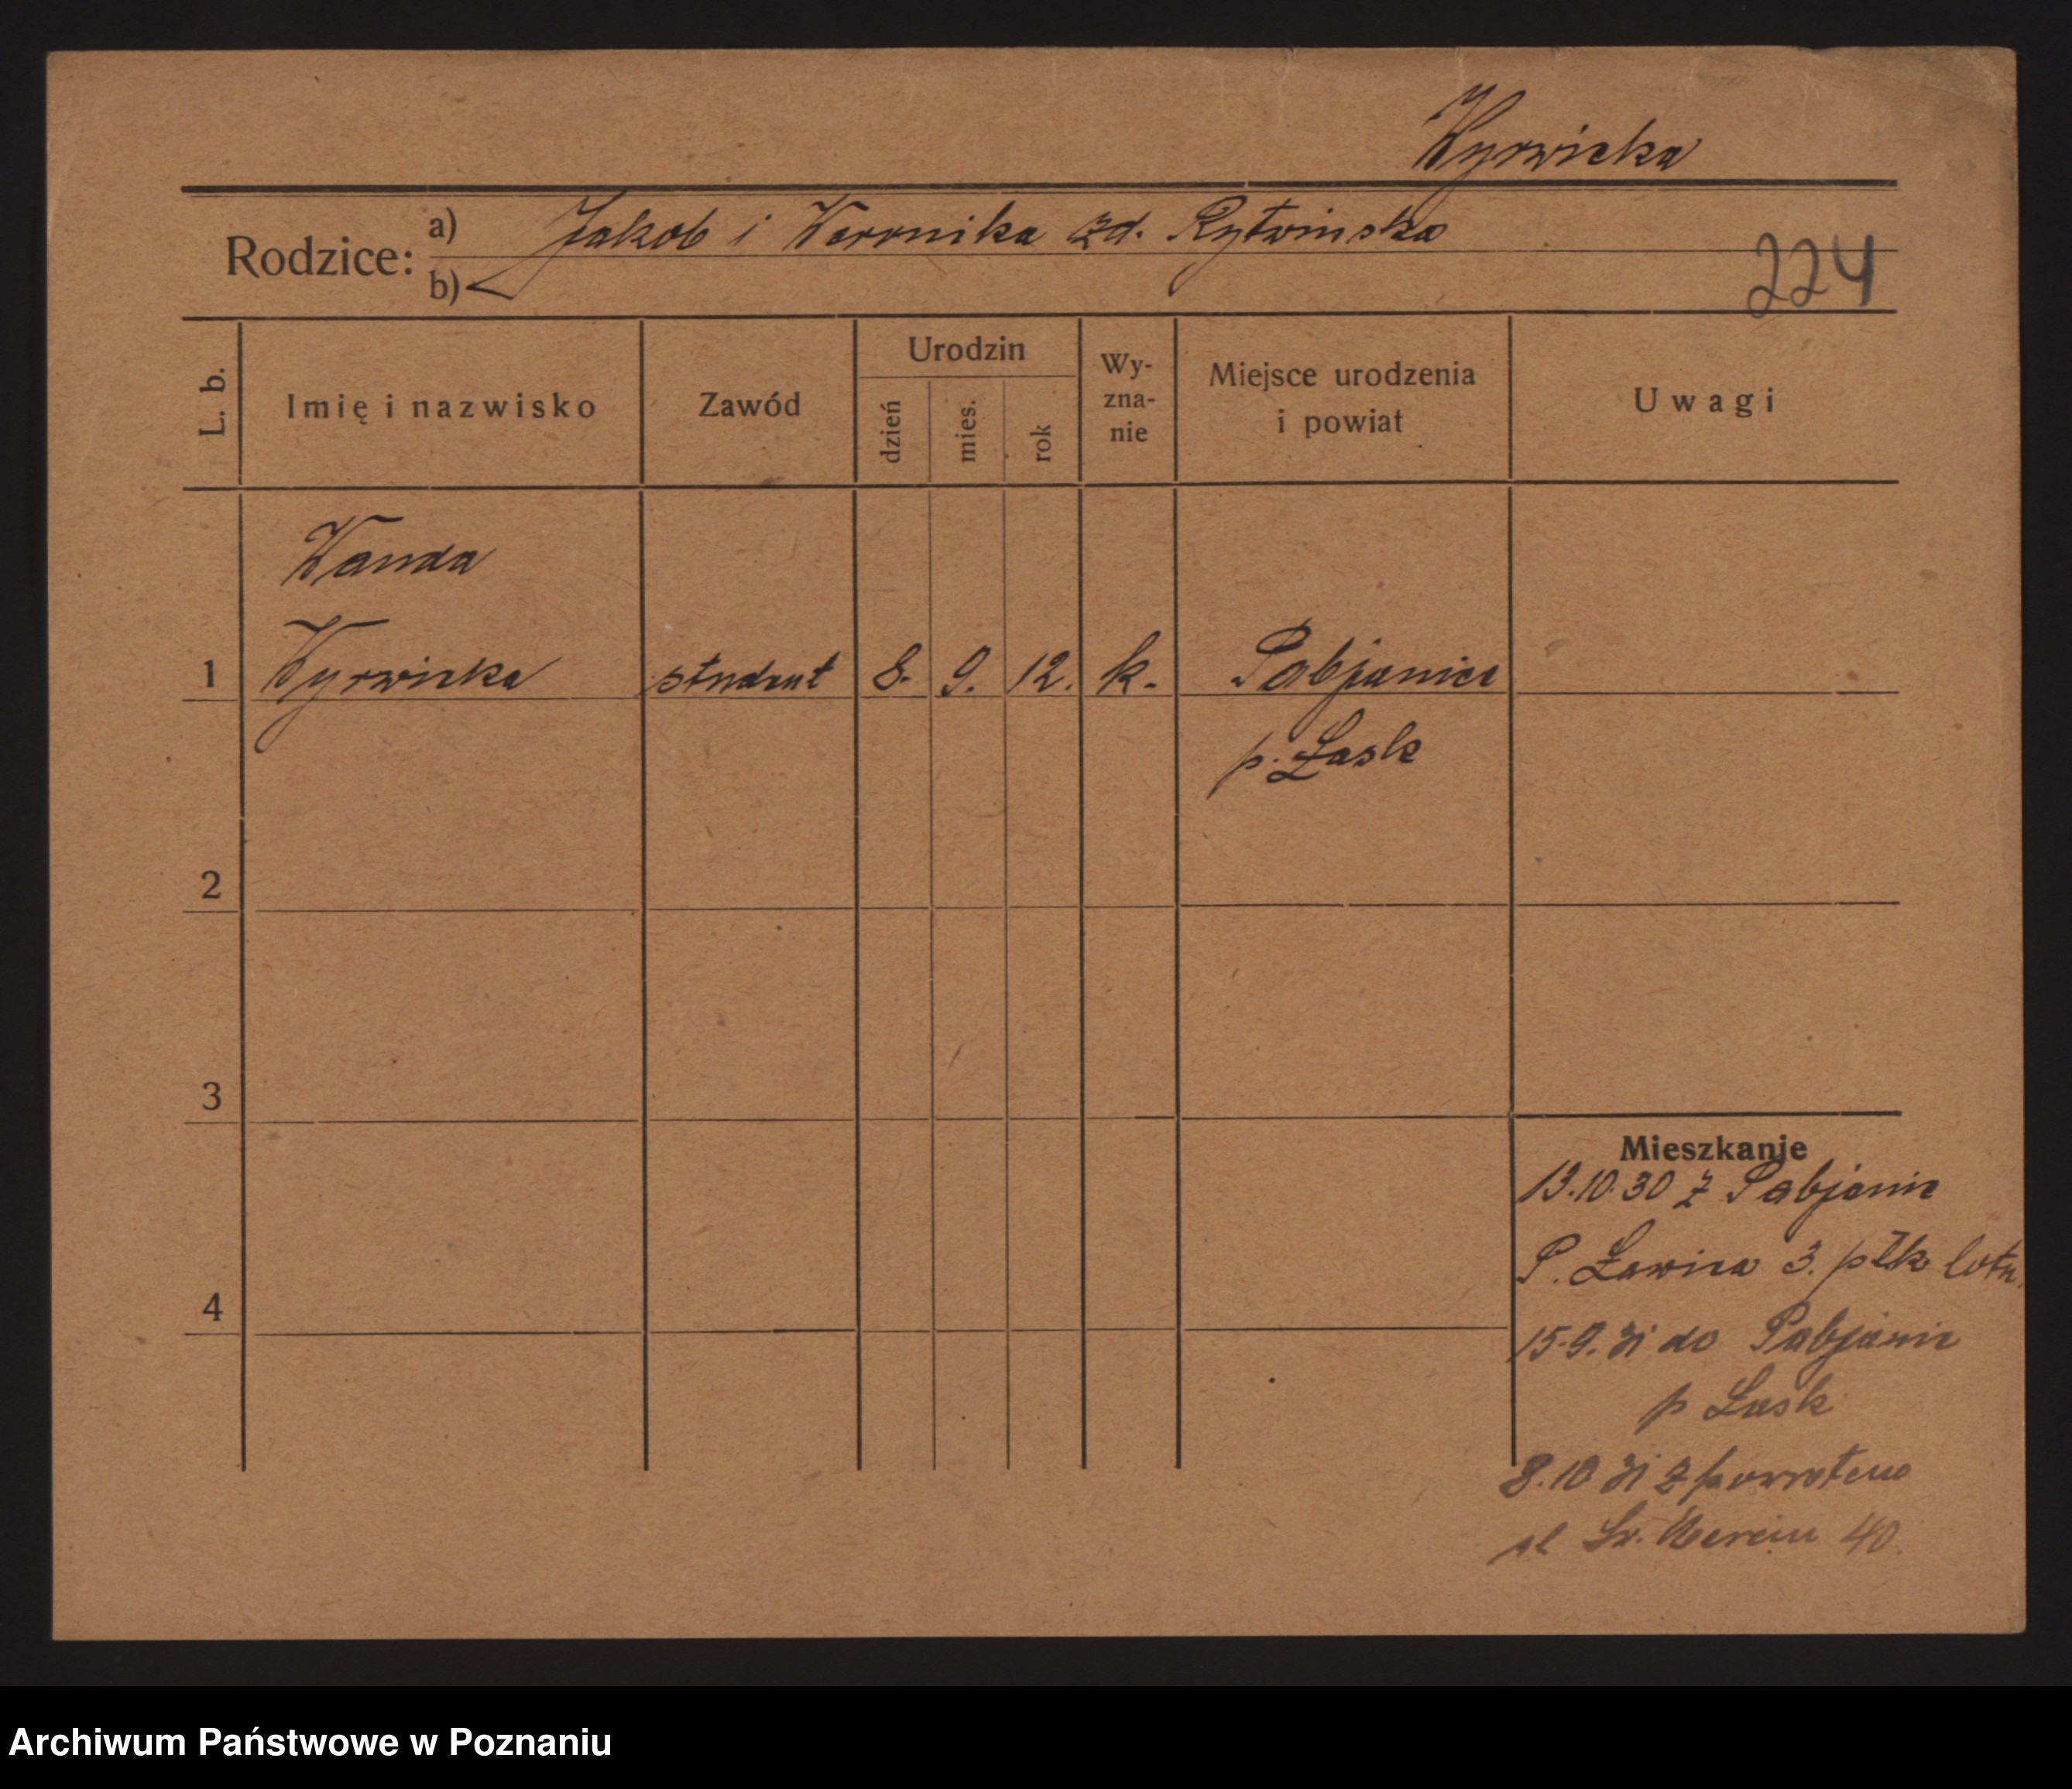 Wyrwicka
Rodzice: a) Jakob i Weronika zd. Rytwinska
b)
224
L. b. Imię i nazwisko Zawód Urodzin dzień mies. rok Wy-zna-nie Miejsce urodzenia i powiat Uwagi
Wanda
1 Wyrwicka student 8. 9. 12. k. Pabjanice
p. Łask
2
3
Mieszkanie
13.10.30 z Pabjanic
P. Ławica 3. płk lotn.
4
15.9.31 do Pabjanic
p Łask
8.10 31 z powrotem
Św. Marcin 40
Archiwum Państwowe w Poznaniu